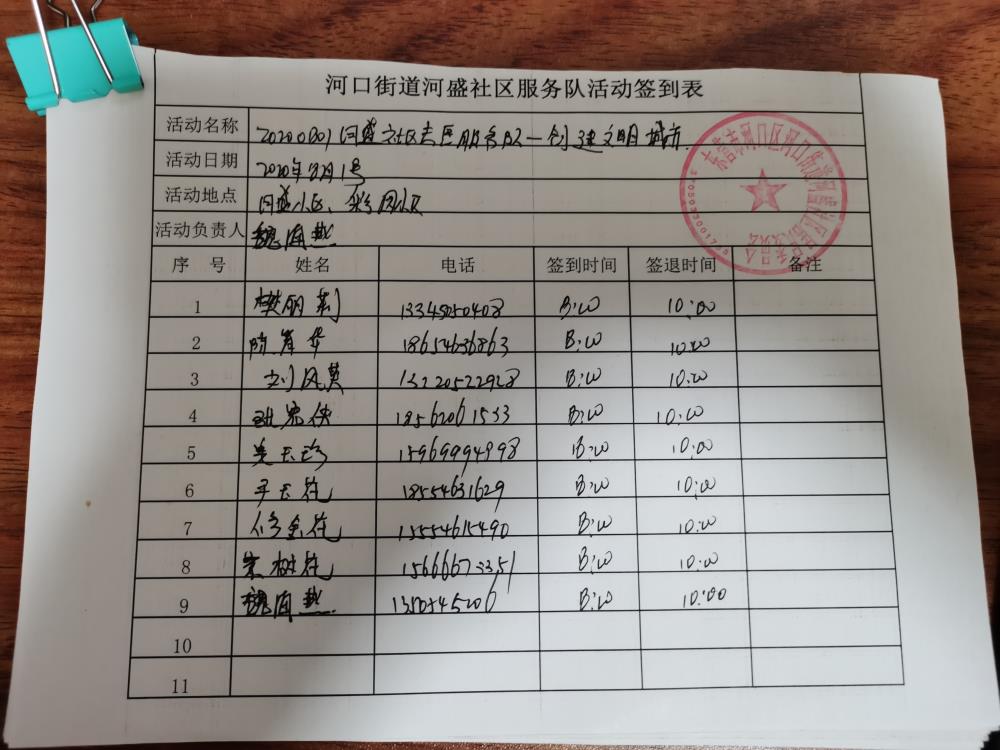 河口街道河盛社区服务队活动签到表
活动名称 20200801河盛社区志愿服务队一创建文明城市
活动日期 2020年8月1号
活动地点 河盛小区、彩园小区
活动负责人 魏海燕
序 号 姓名 电话 签到时间 签退时间 备注
1 樊丽莉 13345050408 8:00 10:00
2 陈 华 18654636863 8:00 10:00
3 刘风英 13220522928 8:00 10:00
4 18562061533 8:00 10:00
5 15969994998 8:00 10:00
6 18554631629 8:00 10:00
7 修金花 15554615490 8:00 10:00
8 宋树花 15666673351 8:00 10:00
9 魏海燕 8:00 10:00
10
11
3705033001735